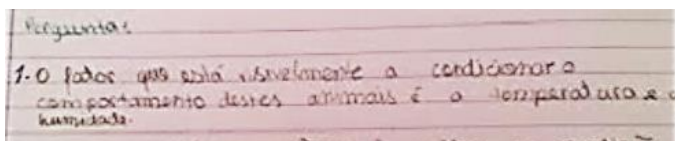 Perguntas
1. O fator que está visivelmente a condicionar o
comportamento destes animais é a temperatura e a
humidade.